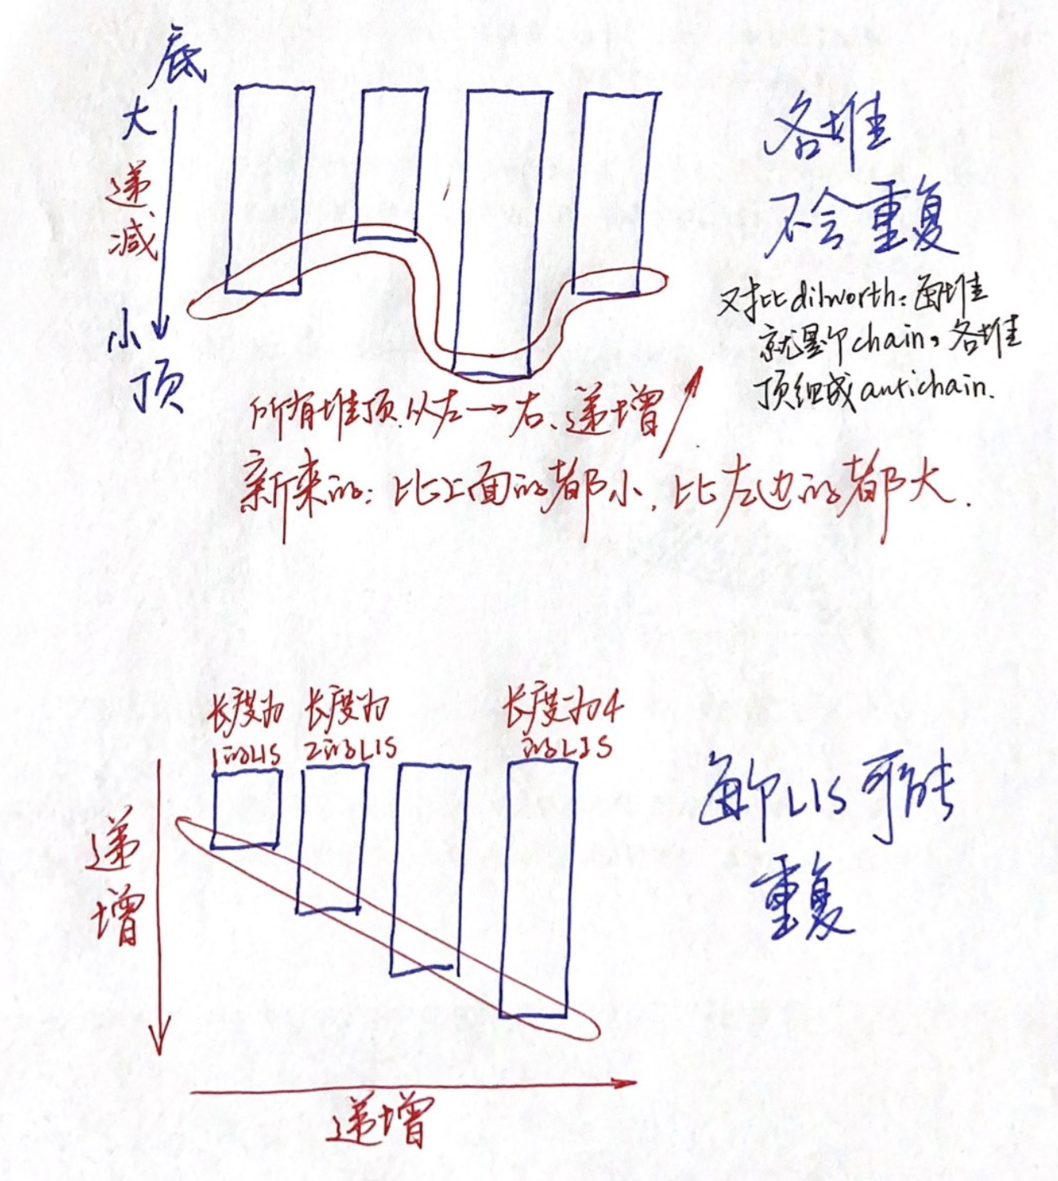 底
大
递
减
小
顶
各堆
不会重复
对比dilworth：每堆
就是个chain。各堆
顶组成antichain.
所有堆顶.从左→右、递增
新来的：比上面的都小，比左边的都大.
长度为
1的LIS
长度为
2的LIS
长度为4
的LIS
每个LIS可能
重复
递
增
递增